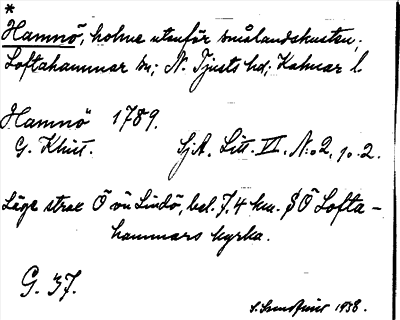 *
Hamnö, holme utanför smålandskusten;
Loftahammar sn; N. Tjusts hd; Kalmar l.
Hamnö 1789.
G. Klint. SjA. Litt. VI. N:o 2, p. 2.
Läge strax Ö om Lindö, bel. 7,4 km. SÖ Lofta-
hammars kyrka.
G. 37.
1938.